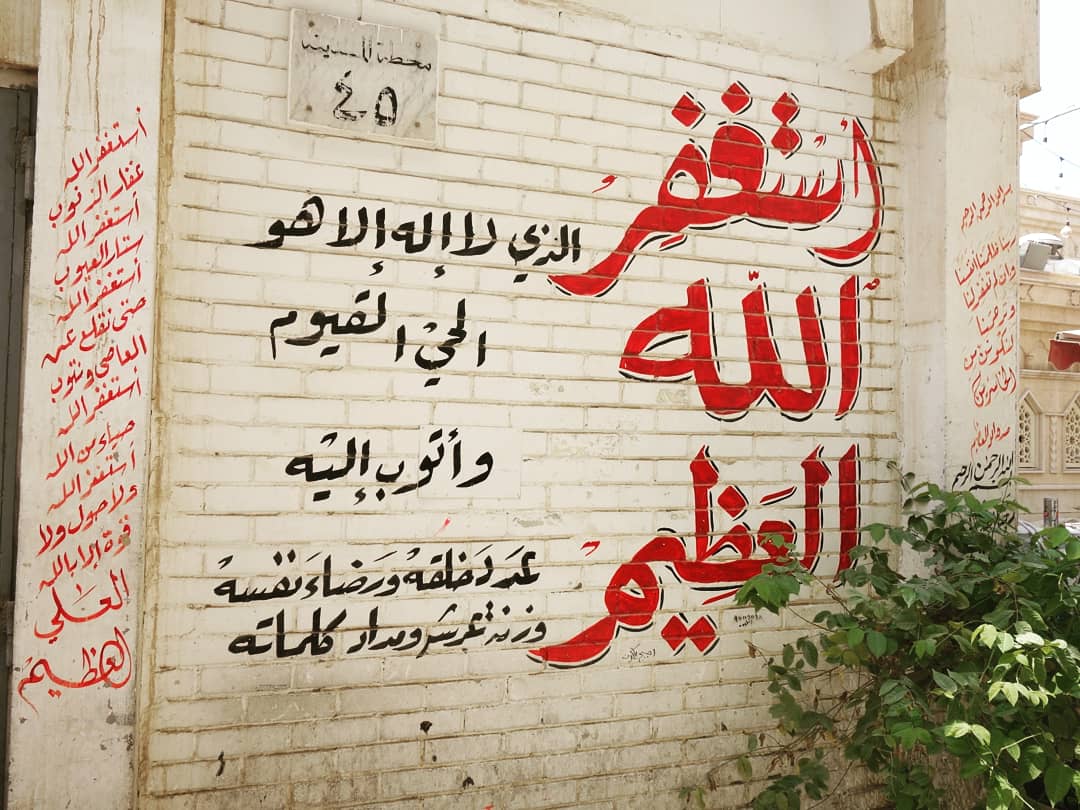 محطة المدينة
٤٥
أستغفر
الله
العظيم
الذي لا إله إلا هو
الحيُ القيوم
وأتوب إليَه
عَدَدَ خلقهُ وَرضاءَ نفسهُ
وزنة عرشه ومداد كلماته
أستغفر الله
غفار الذنوب
أستغفر الله
ستار العيوب
أستغفر الله
حتى نقلع عن
المعاصي ونتوب
أستغفر الله
حياء من الله
أستغفر الله
ولا حول ولا
قوة إلا بالله
العَلي
العظيم
بسم الله الرحمن الرحيم
ربنا ظلمنا أنفسنا
وإن لم تغفر لنا
وترحمنا
لنكونن من
الخاسرين
الرحمن الرحيم